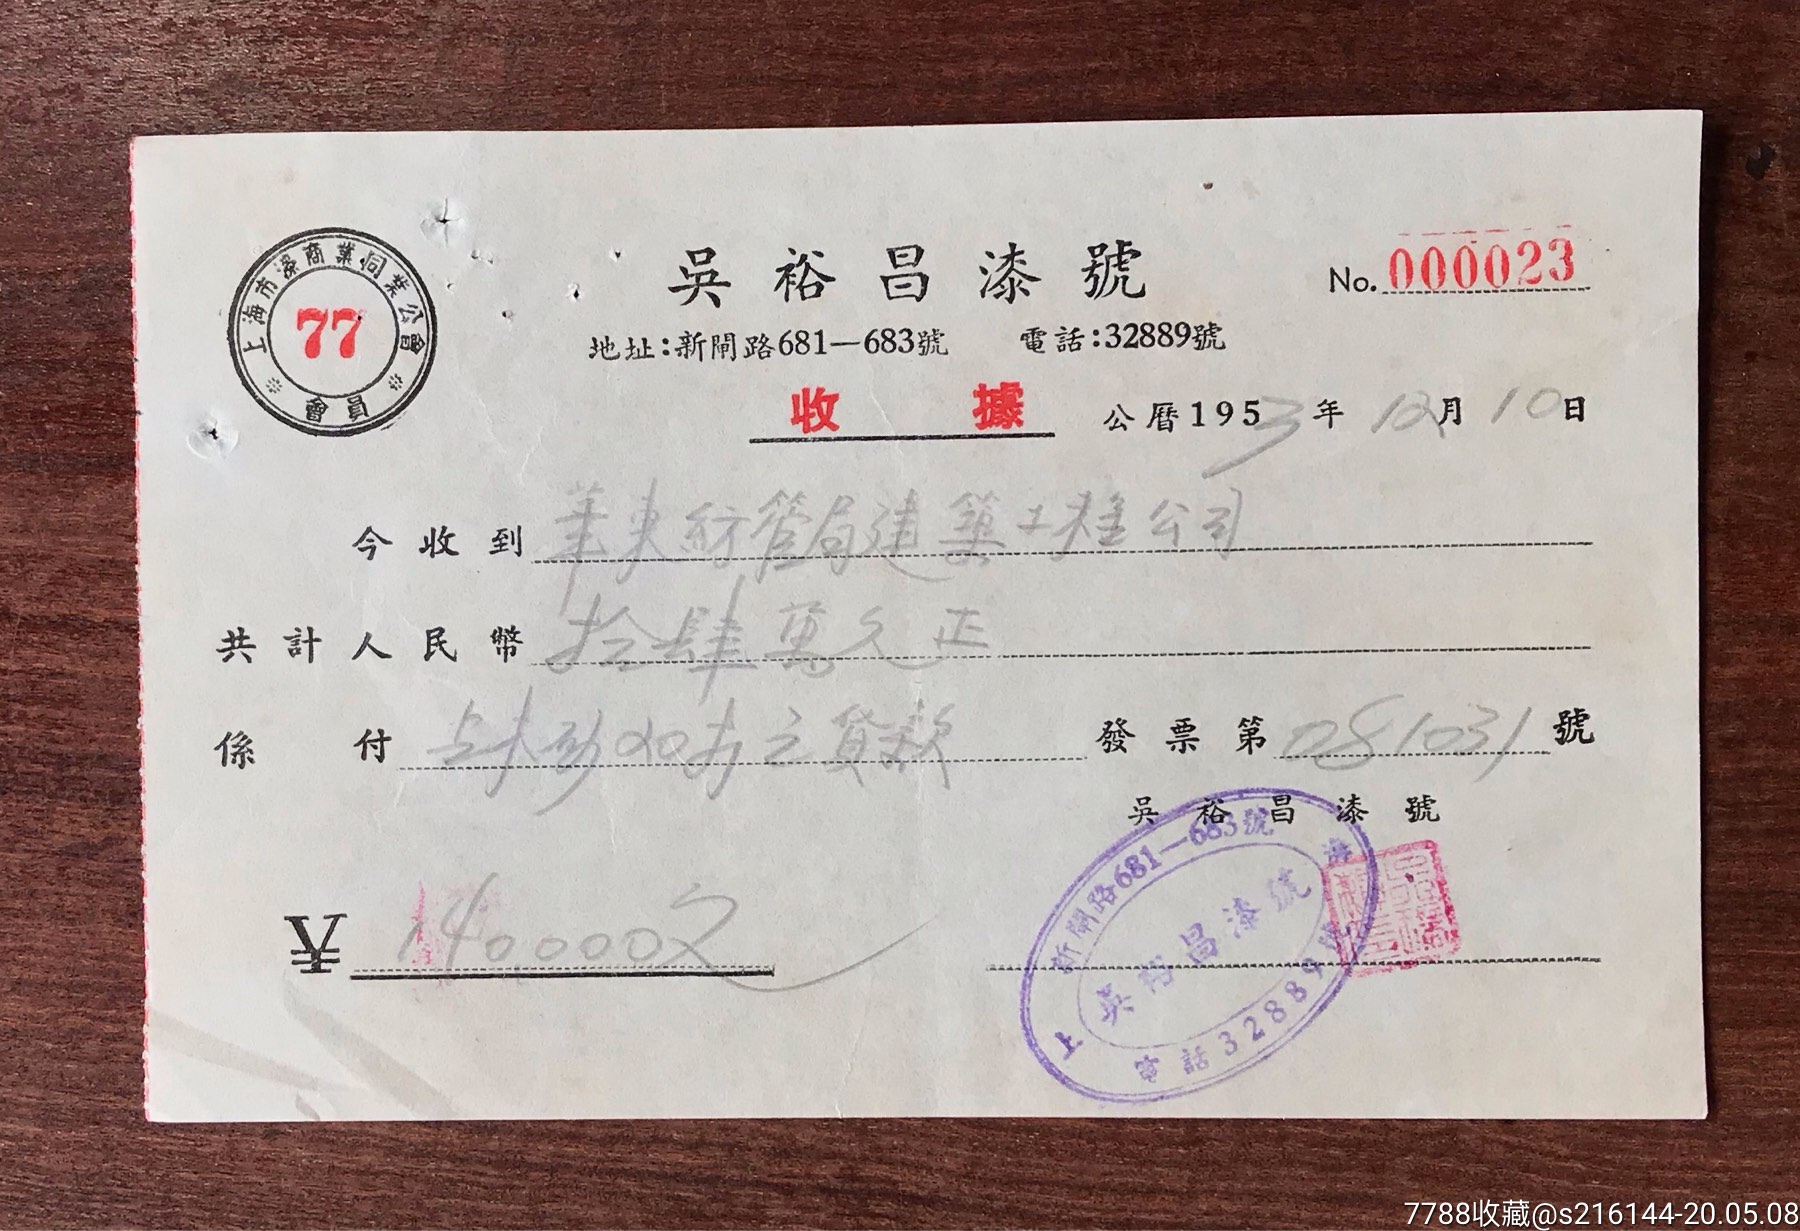 上海市漆商業同業公會
77
會員
吳裕昌漆號
No. 000023
地址:新閘路681—683號 電話:32889號
收據 公曆1953年12月10日
今收到華東紡管局建築工程公司
共計人民幣拾肆萬元正
係付 之貨款 發票第081031號
吳裕昌漆號
140.000元
新閘路681—683號
上海
吳裕昌漆號
電話32889號
7788收藏@s216144-20.05.08